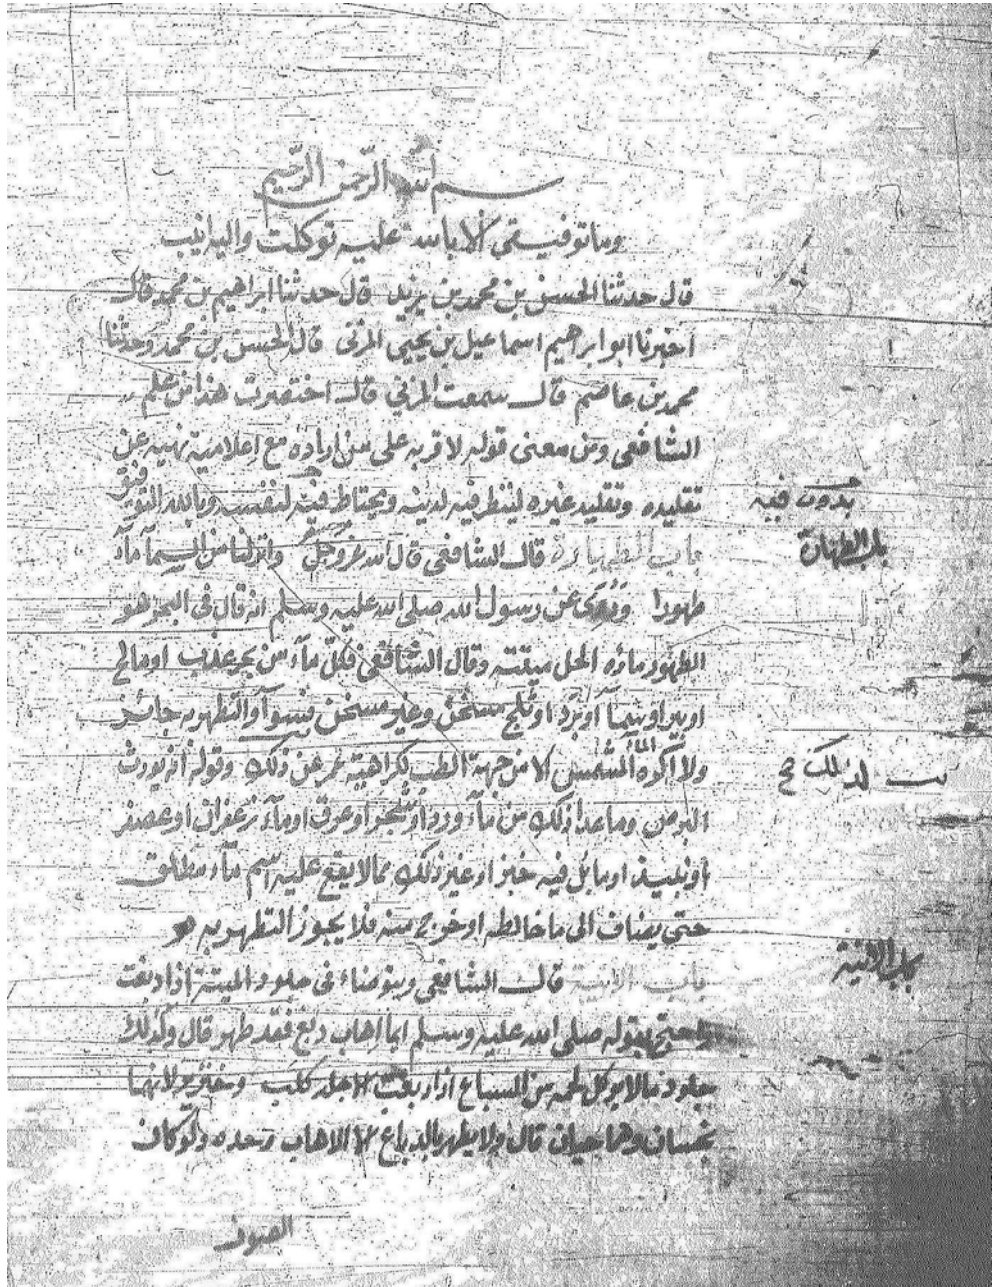 بسم الله الرحمن الرحيم
وما توفيقي الا بالله عليه توكلت واليه انيب
قال حدثنا الحسن بن محمد بن يزيد قال حدثنا ابراهيم بن محمد قال
اخبرنا ابو ابراهيم اسماعيل بن يحيى المزني قال الحسن بن محمد وحدثنا
محمد بن عاصم قال سمعت المزني قال اختصرت هذا من علم
الشافعي ومن معنى قوله لاقربه على من اراده مع اعلاميه نهيه عن
تقليده وتقليد غيره لينظر فيه لدينه ويحتاط فيه لنفسه وبالله التوفيق
بدون فيه
باب الطهارة قال الشافعي قال الله عز وجل وانزلنا من السمآء مآء
باب الطهارة
طهورا وروى عن رسول الله صلى الله عليه وسلم انه قال في البحر هو
الطهور ماؤه الحل ميتته وقال الشافعي فكل مآء من بحر عذب او مالح
او بير او سمآء او برد او ثلج مسخن وغير مسخن فسوآء والتطهر به جائز
ولا اكره المآء المشمس الا من جهة الطب لكراهية عمر عن ذلك وقوله انه يورث
لذلك صح
البرص وما عدا ذلك من مآء ورد او شجر او عرق او مآء زعفران او عصفر
او نبيذ او ما بل فيه خبز او غير ذلك مما لا يقع عليه اسم مآء مطلق
حتى يضاف الى ما خالطه او خرج منه فلا يجوز التطهر به
باب الانية
باب الانية قال الشافعي ويتوضاء في جلود الميتة اذا دبغت
واحتج بقوله صلى الله عليه وسلم ايما اهاب دبغ فقد طهر قال وكذلك
جلود مالا يوكل لحمه من السباع اذا دبغت الا جلد كلب وخنزير لانهما
نجسان وهما حيان قال ولا يطهر بالدباغ الا الاهاب وحده ولو كان
الصوف